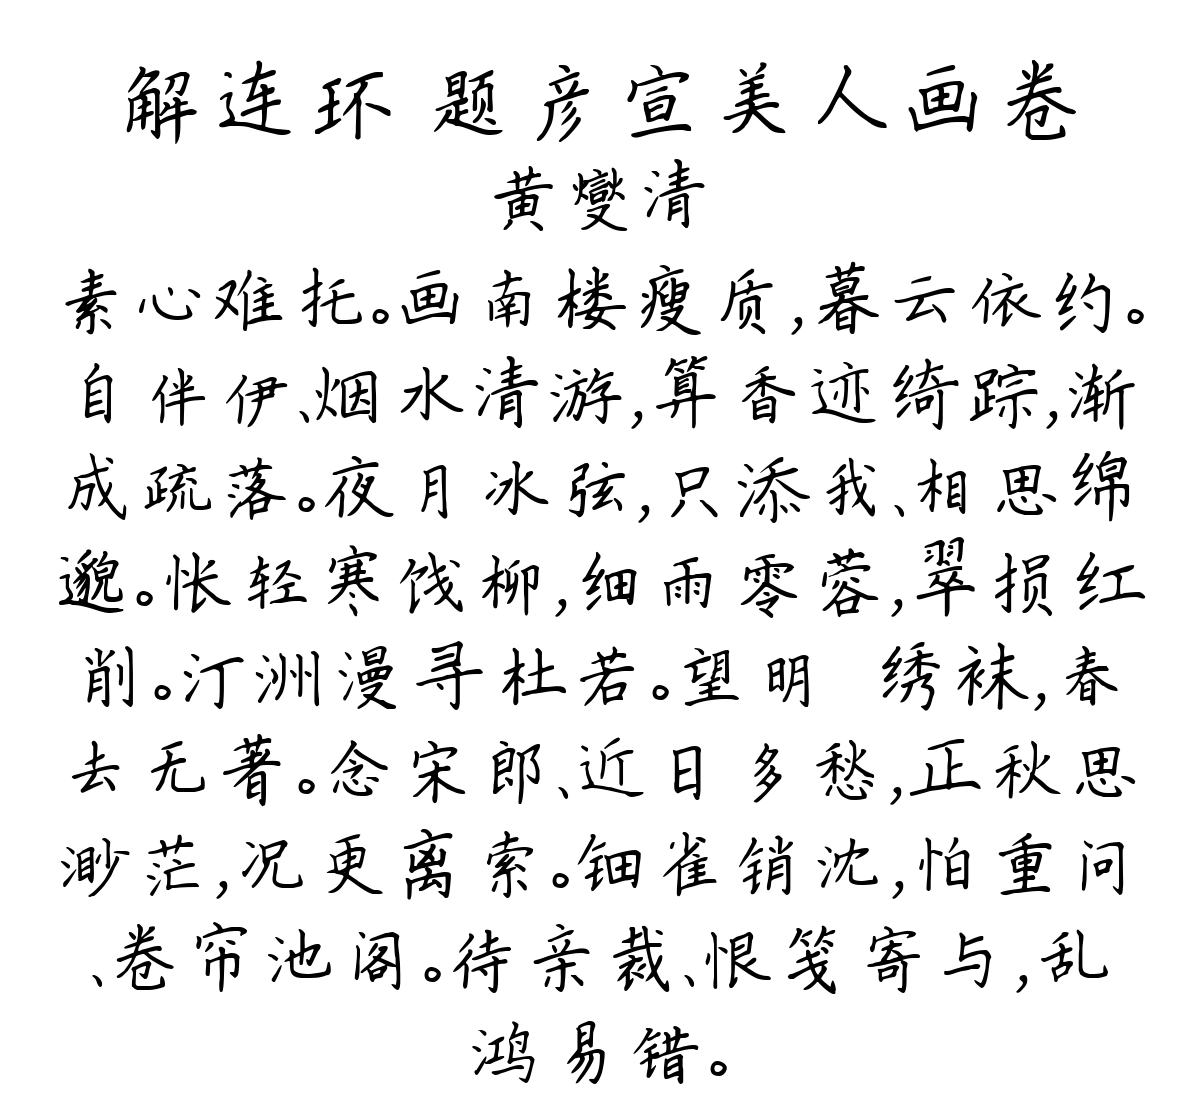 解连环 题彦宣美人画卷
黄燮清
素心难托。画南楼瘦质,暮云依约。
自伴伊、烟水清游,算香迹绮踪,渐
成疏落。夜月冰弦,只添我、相思绵
邈。怅轻寒饯柳,细雨零蓉,翠损红
削。汀洲漫寻杜若。望明 绣袜,春
去无著。念宋郎、近日多愁,正秋思
渺茫,况更离索。钿雀销沈,怕重问
、卷帘池阁。待亲裁、恨笺寄与,乱
鸿易错。